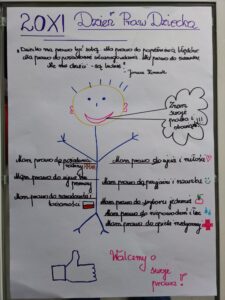 20 XI Dzień Praw Dziecka
"Dziecko ma prawo być sobą. Ma prawo do popełniania błędów.
Ma prawo do posiadania własnego zdania. Ma prawo do szacunku.
Nie ma dzieci - są ludzie."
- Janusz Korczak
Znam
swoje
prawa i
obowiązki!!!
Mam prawo do posiadania
rodziny
Mam prawo do opieki i miłości
Mam prawo do
pomocy
Mam prawo do przyjaźni i
Mam prawo do
tożsamości
Mam prawo do
Mam prawo do wypoczynku i
Mam prawo do opieki medycznej
Walczmy o
swoje
prawa!